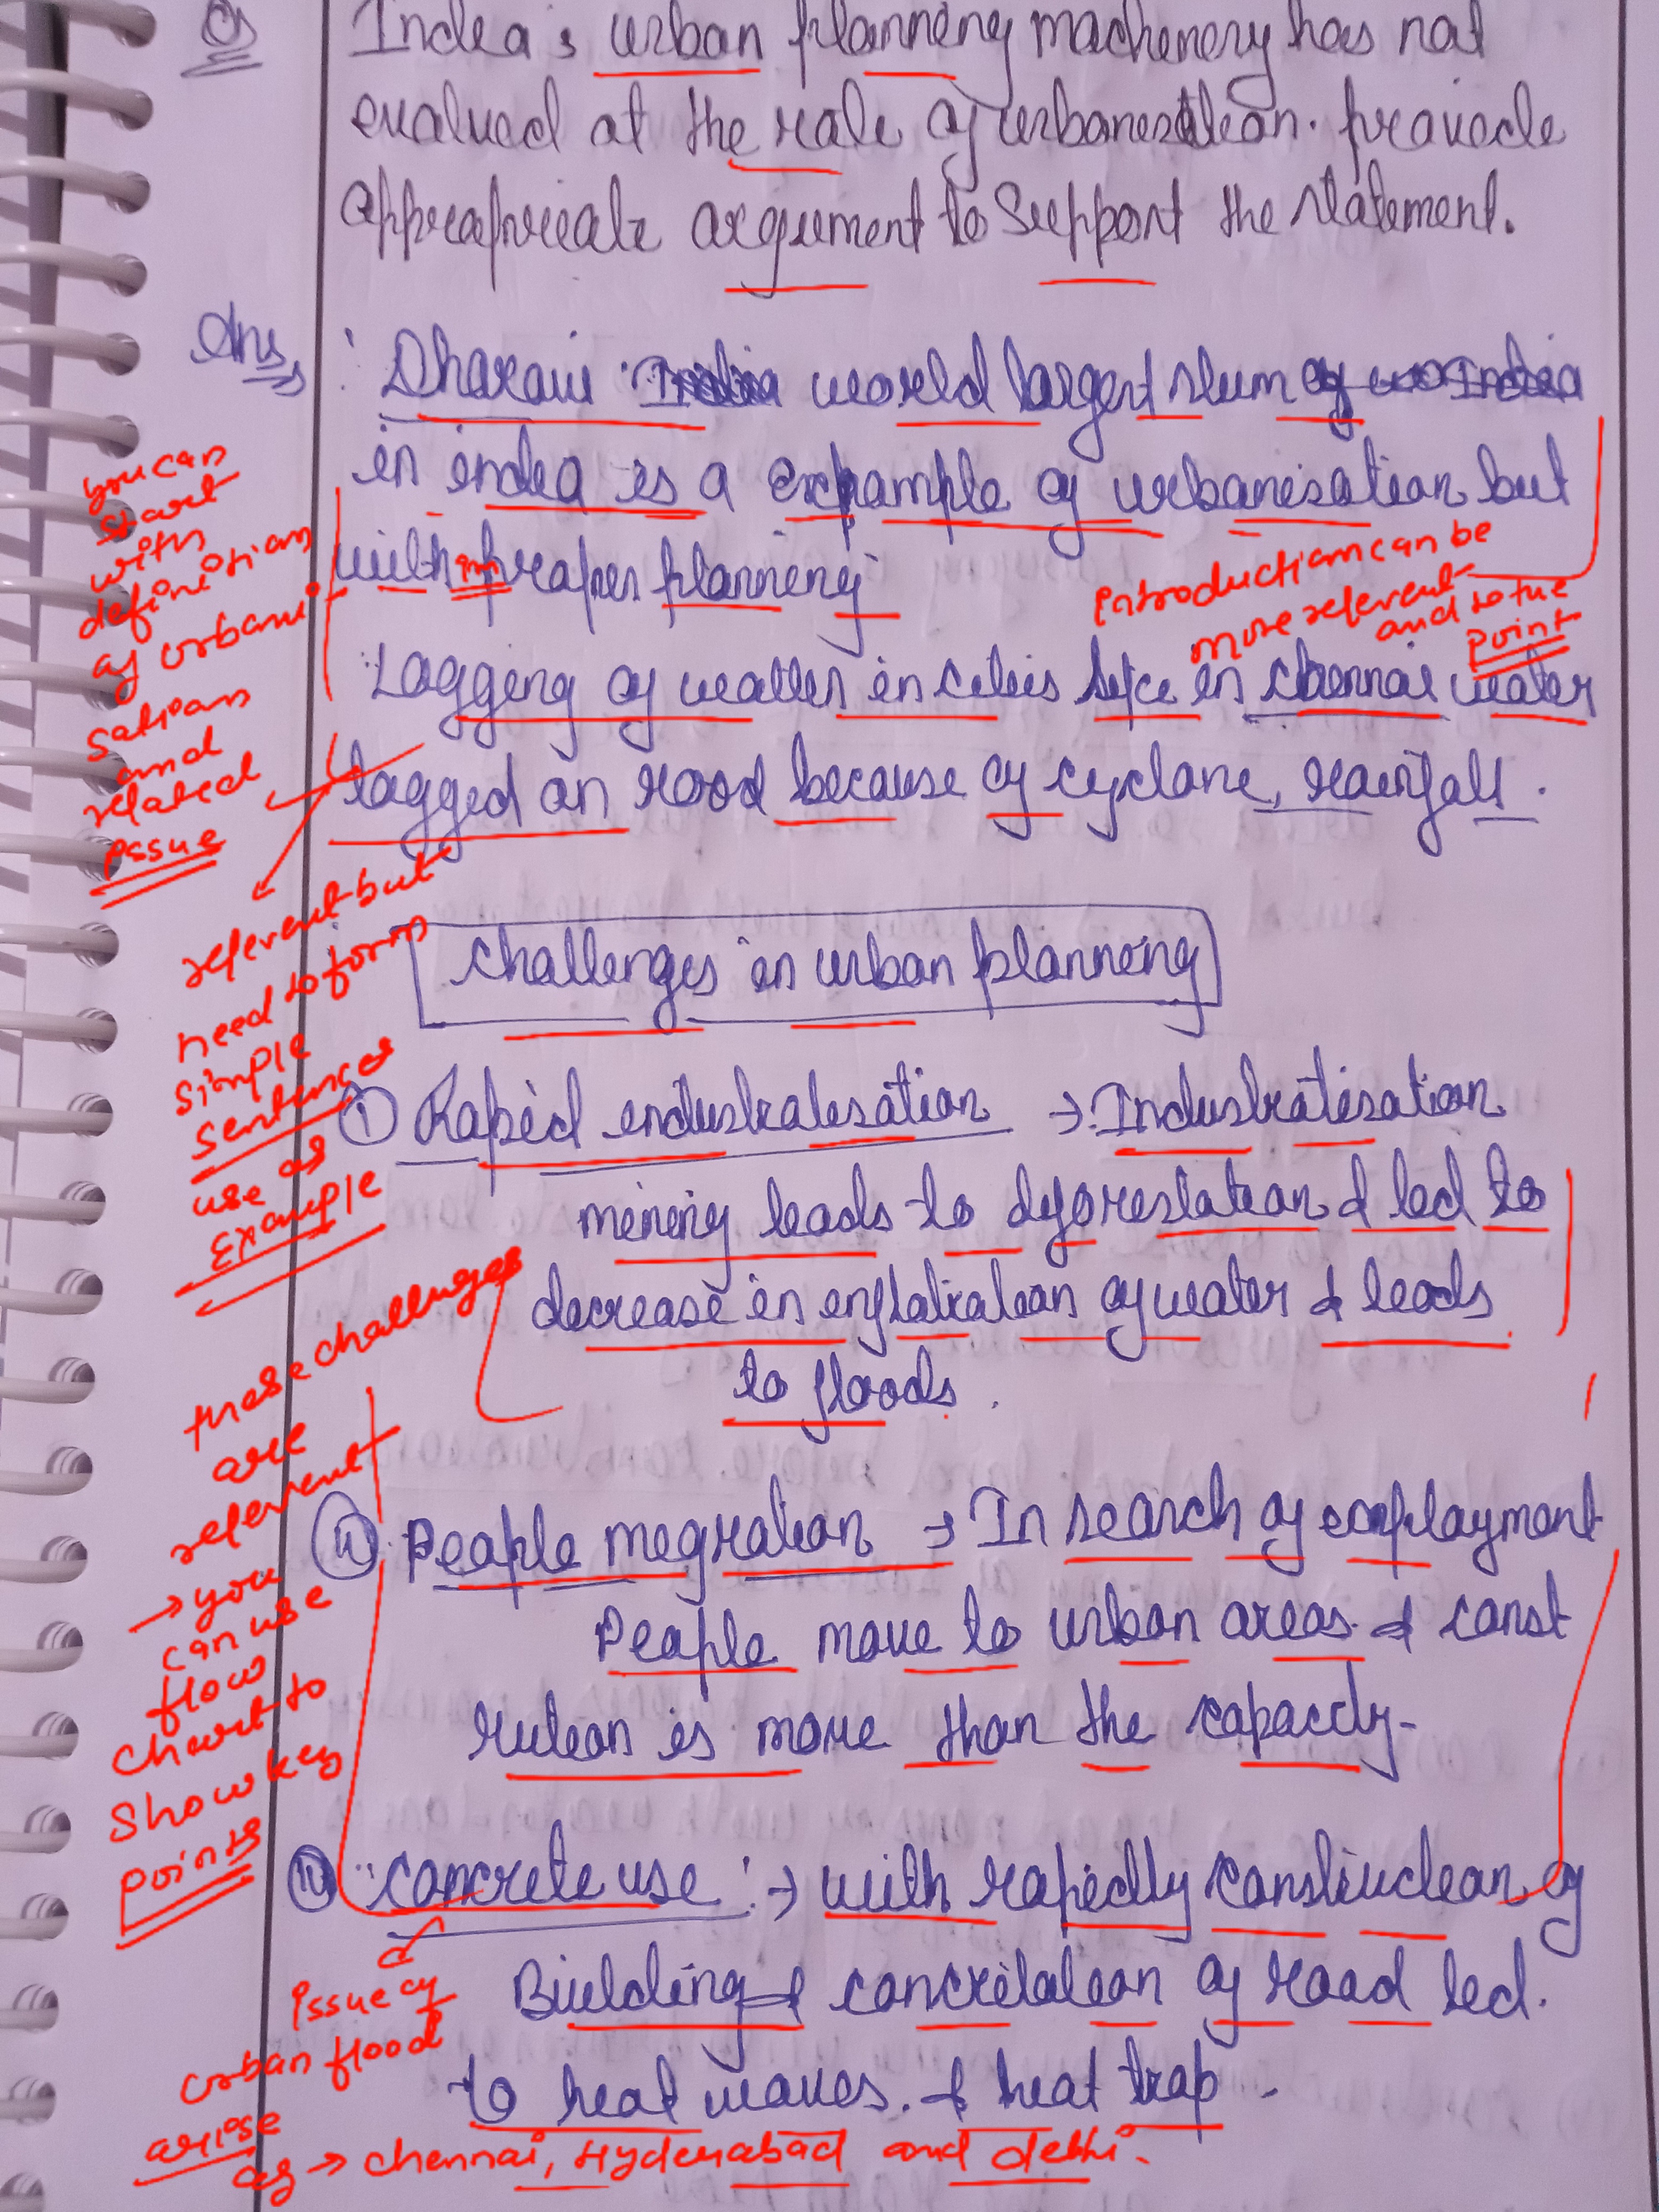 Q
India's urban planning machinery has not
evolved at the rate of urbanisation. provide
appropriate argument to Support the statement.
Ans
Dharavi world largest slum
in india is a example of urbanisation but
with im proper planning
Logging of water in cities like in chennai water
logged on road because of cyclone, rainfall.
you can
start
with
definition
of urbani
sation
and
related
issue
introduction can be
more relevent
and to the
point
relevent but
need to form
simple
sentences
use as
Example
challenges in urban planning
① Rapid industralisation → Industralisation
mining leads to deforestation & led to
decrease in infiltration of water & leads
to floods.
these challenges
are
relevent
→ you
can use
flow
chart to
show key
points
② People migration → In search of employment
People move to urban areas. & const
ruction is more than the capacity-
③ concrete use :→ with rapidly construction of
Building & concretation of road led.
to heat waves. & heat trap -
issue of
urban flood
arise
eg → chennai, Hyderabad and delhi.